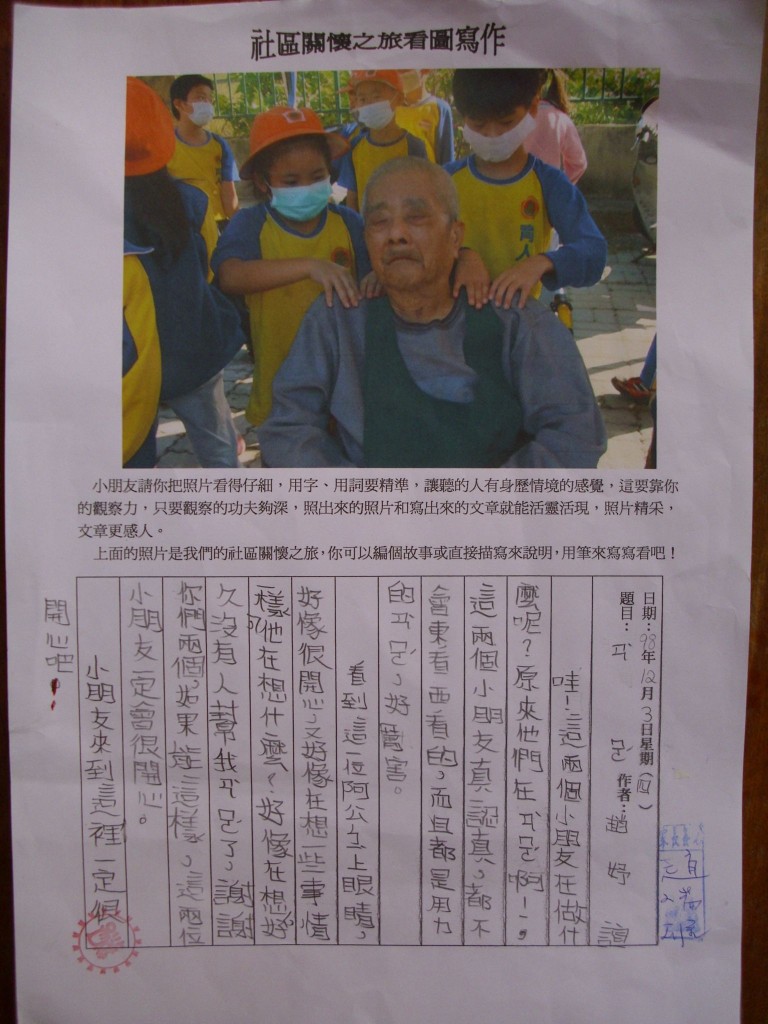 社區關懷之旅看圖寫作
小朋友請你把照片看得仔細，用字、用詞要精準，讓聽的人有身歷情境的感覺，這要靠你
的觀察力，只要觀察的功夫夠深，照出來的照片和寫出來的文章就能活靈活現，照片精采，
文章更感人。
上面的照片是我們的社區關懷之旅，你可以編個故事或直接描寫來說明，用筆來寫寫看吧！
日期：98年12月3日星期（四）
題目：ㄗㄨㄛˊ 作者：趙妤誼
哇！這兩個小朋友在做什
麼呢？原來他們在ㄗㄨㄛˊ啊！，
這兩個小朋友真認真，都不
會東看西看的，而且都是用力
的ㄗㄨㄛˊ，好厲害。
看到這一位阿公坐上眼睛，
好像很開心，又好像在想一些事情
樣，他在想什麼？好像在想好
久沒有人幫我ㄗㄨㄛˊ了，謝謝
你們兩個，如果能這樣，這兩位
小朋友一定會很開心。
小朋友來到這裡一定很
開心吧！